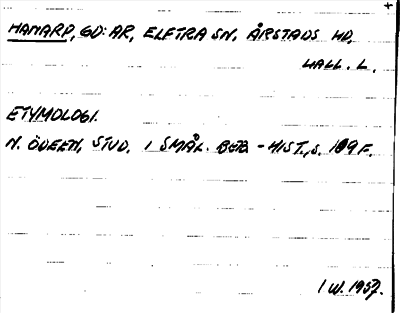 HAMARP, GD: AR, ELFTRA SN, ÅRSTADS HD,
HALL. L.
ETYMOLOGI.
N. ÖDEEN, STUD. I SMÅL. BEB. - HIST., S. 189 F.
I W. 1957.